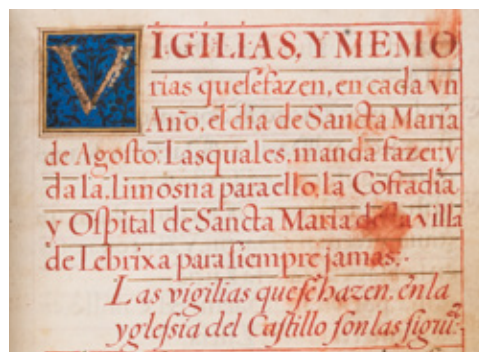 VIGILIAS, Y MEMO
rias que se fazen, en cada vn
Año, el dia de Sancta Maria
de Agosto: Las quales, manda fazer, y
da la, limosna para ello, la Cofradia
y Ospital de Sancta Maria de la villa
de Lebrixa para siempre jamas.
Las vigilias que se hazen, en la
yglessia del Castillo son las sigui